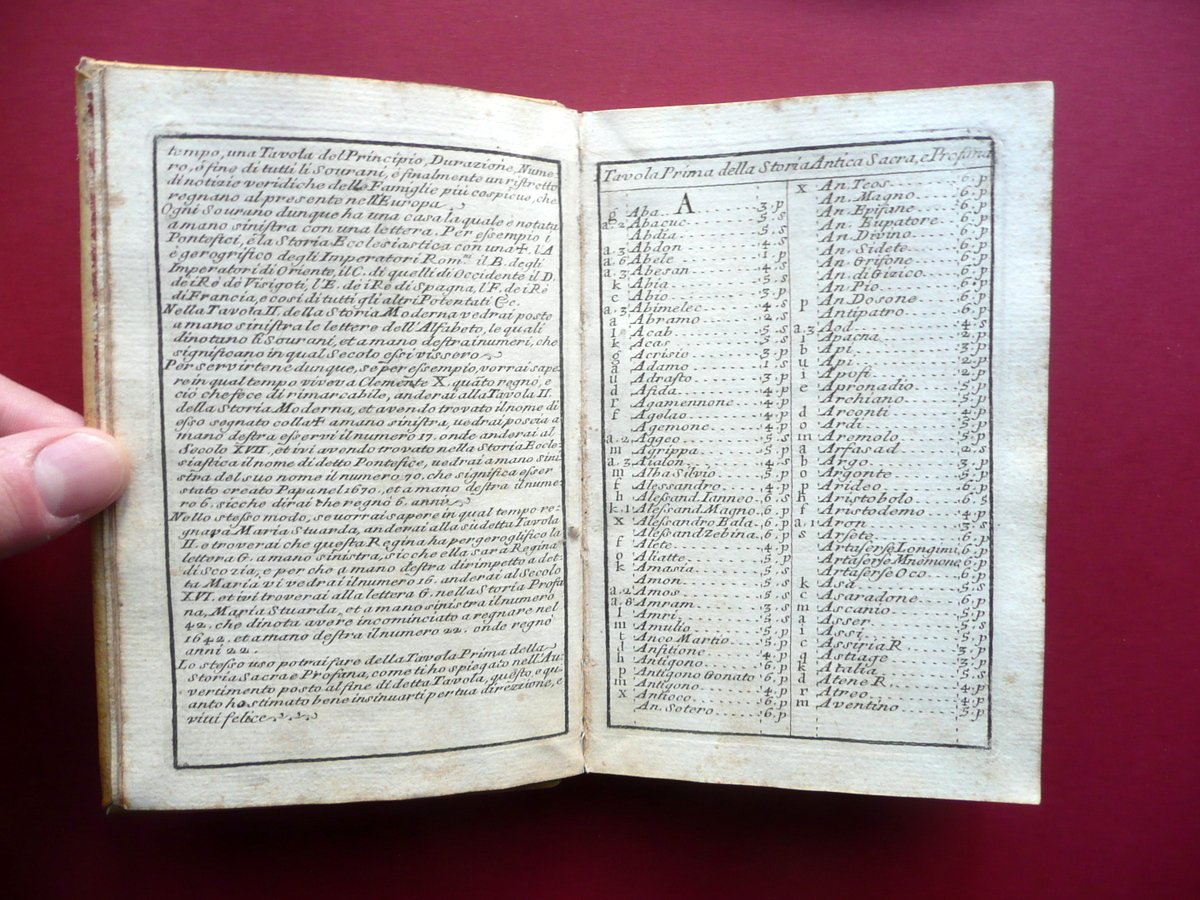 tempo, una Tavola del Principio, Durazione, Nume-
ro, ó fine di tutti li Sourani, é finalmente un ristretto
di notizie veridiche delle Famiglie più cospicue, che
regnano al presente nell'Europa.
Ogni Sourano dunque ha una casa la quale é notata
a mano sinistra con una lettera. Per essempio i
Pontefici, é la Storia Ecclesiastica con una ✝. l'A
é gerogrifico degli Imperatori Romⁿⁱ. il B. degli
Imperatori di Oriente, il C. di quelli di Occidente il D.
dei Rè de Visigoti, l'E. dei Rè di Spagna, l'F. dei Rè
di Francia, e così di tutti gli altri Potentati &c.
Nella Tavola II. della Storia Moderna vedrai posto
a mano sinistra le lettere dell'Alfabeto, le quali
dinotano li Sourani, et a mano destra i numeri, che
significano in qual Secolo essi vissero
Per servirtene dunque, se per essempio, vorrai sape-
re in qual tempo viveva Clemente X. quāto regnò, e
ciò che fece di rimarcabile, anderai alla Tavola II.
della Storia Moderna, et avendo trovato il nome di
esso segnato colla ✝ a mano sinistra, uedrai poscia a
mano destra esservi il numero 17. onde anderai al
Secolo XVII, et ivi avendo trovato nella Storia Eccle-
siastica il nome di detto Pontefice, uedrai a mano sini-
stra del suo nome il numero 70, che significa esser
stato creato Papa nel 1670, et a mano destra il nume-
ro 6. sicche dirai che regnò 6. anni
Nello stesso modo, se uorrai sapere in qual tempo re-
gnava Maria Stuarda, anderai alla sudetta Tavola
II. e troverai che questa Regina ha per geroglifico la
lettera G. a mano sinistra, sicche ella sarà Regina
di Scozia, e per che a mano destra dirimpetto a det-
ta Maria vi vedrai il numero 16. anderai al Secolo
XVI. et ivi troverai alla lettera G. nella Storia Profa-
na, Maria Stuarda, et a mano sinistra il numero
42. che dinota avere incominciato a regnare nel
1642. et a mano destra il numero 22. onde regnò
anni 22.
Lo stesso uso potrai fare della Tavola Prima della
Storia Sacra e Profana, come ti hò spiegato nell'Au-
vertimento posto al fine di detta Tavola, questo e qu-
anto ho stimato bene insinuarti per tua direzione, e
vivi felice
Tavola Prima della Storia Antica Sacra, e Profana
A
g Aba 3.p
a.2 Abacuc 5.s
Abdia 5.s
a.3 Abdon 4.s
a.6 Abele 1.p
a.3 Abesan 4.s
k Abia 5.s
c Abio 3.p
a.3 Abimelec 4.s
a Abramo 2.s
l Acab 5.s
k Acas 5.s
g Acrisio 3.p
a Adamo 1.s
u Adrasto 3.p
d Afida 4.p
r Agamennone 4.p
f Agelao 4.p
Agemone 4.p
a.2 Aggeo 5.s
m Agrippa 5.p
a.3 Aialon 4.s
m Alba Silvio 5.p
f Alessandro 4.p
h Alessand. Ianneo 6.s
k.1 Alessand. Magno 6.p
x Alessandro Bala 6.p
Alessand zebina 6.p
f Alete 4.p
o Aliatte 5.p
k Amasia 5.s
Amon 5.s
a.2 Amos 5.s
a.8 Amram 3.s
l Amri 5.s
m Amulio 5.p
t Anco Martio 5.p
l Anfitione 4.p
h Antigono 6.p
p Antigono Gonato 6.p
m Antigono 4.p
x Antioco 6.p
An. Sotero 6.p
x An. Teos 6.p
An. Magno 6.p
An. Epifane 6.p
An. Eupatore 6.p
An. Divino 6.p
An. Sidete 6.p
An. Grifone 6.p
An. di Gizico 6.p
An. Pio 6.p
An. Dosone 6.p
p Antipatro 6.p
a.3 Aod 4.s
i Apacna 2.p
b Api 3.p
u Api 3.p
i Apofi 2.p
e Apronadio 5.p
Archiano 5.p
d Arconti 4.p
o Ardi 5.p
m Aremolo 5.p
a Arfasad 2.s
b Argo 3.p
o Argonte 5.p
p Arideo 6.p
h Aristobolo 6.s
f Aristodemo 4.p
a.1 Aron 3.s
s Arsete 6.p
Artaserse Longimi. 6.p
Artaserse Mnemone 6.p
Artaserse Oco 6.p
k Asa 5.s
c Asaradone 6.p
m Ascanio 4.p
a Asser 3.s
i Assi 3.p
c Assiria R 3.p
q Astiage 5.p
k Atalia 5.s
d Atene R 3.p
r Atreo 4.p
m Aventino 5.p